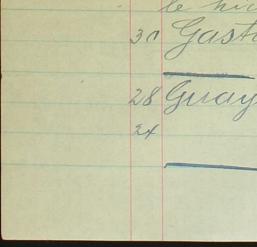 le
30 Gast
28 Guay
24